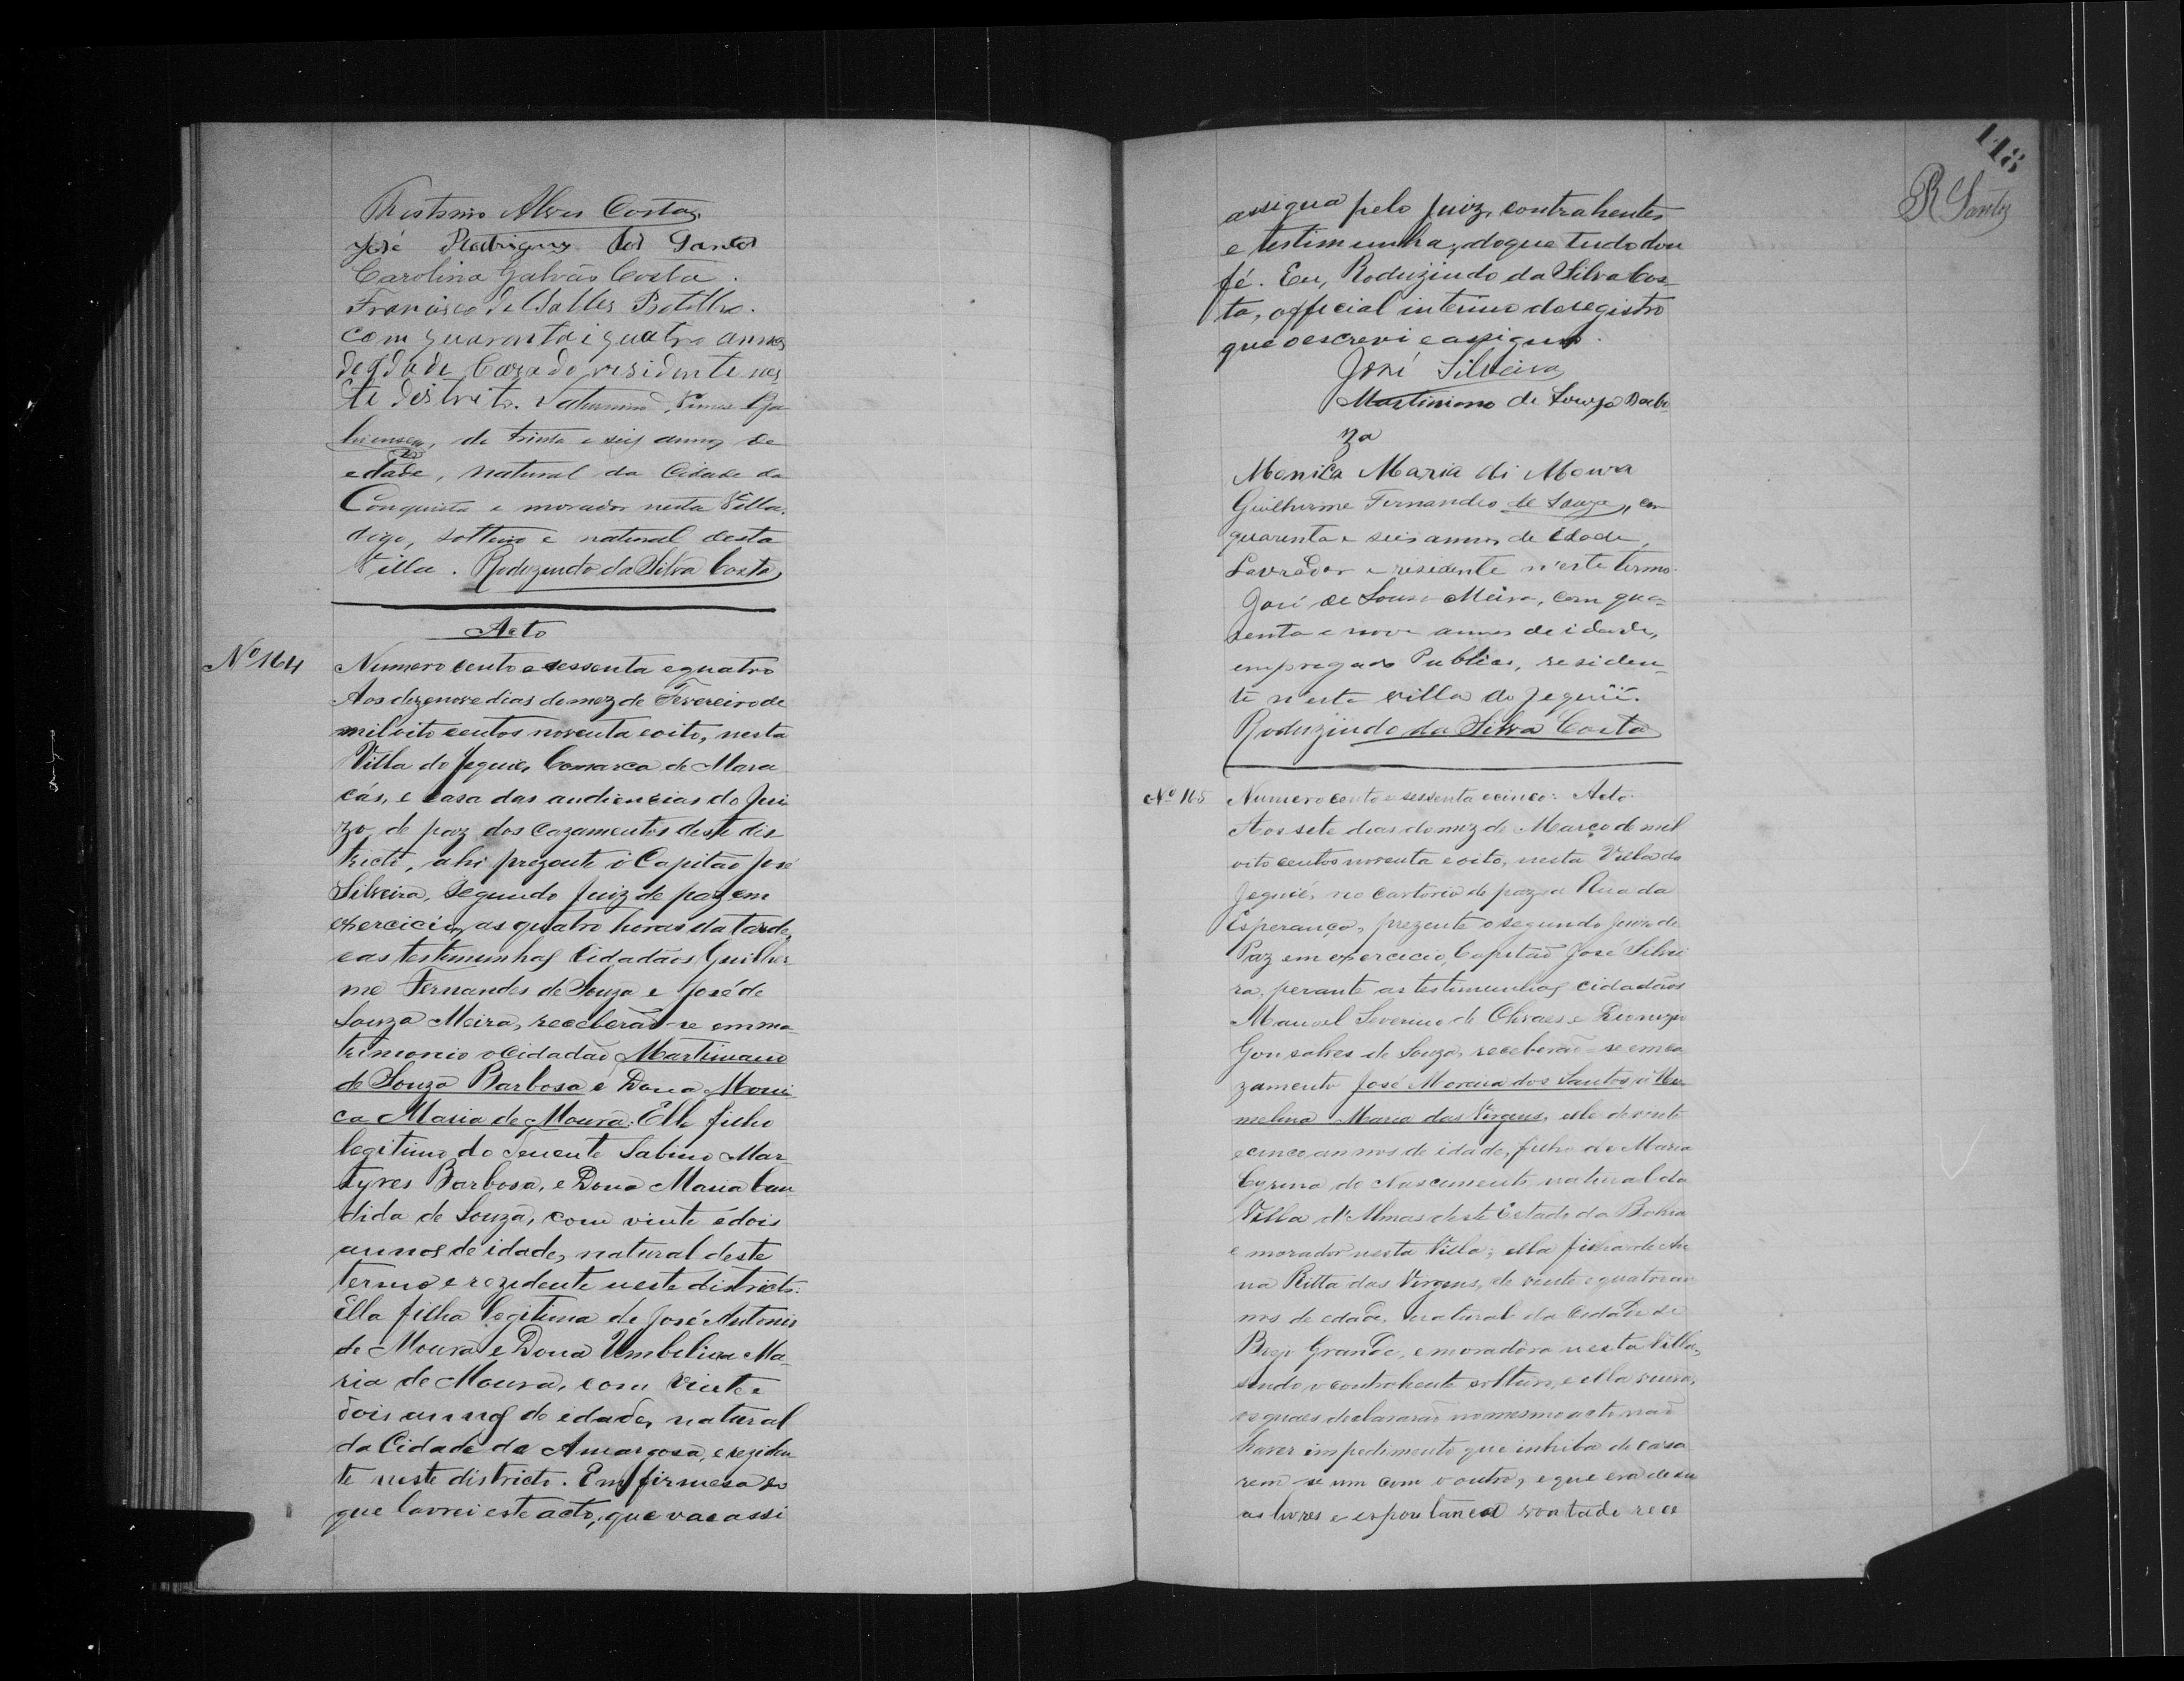 Alves Costa,
José Rodrigues dos Santos
Carolina Galvão Costa.
Francisco de Salles Botelho.
com quarenta i quatro annos
de idade Cazado residente nes
te distrito. Saturnino
de trinta e seis annos de
edade, natural da Cidade da
Conquista e morador nesta Villa,
digo, solteiro e natural desta
Villa. Roduzindo da Silva Costa
Acto
Nº 164
Numero cento e sessenta e quatro
Aos dezenove dias do mez de Fevereiro de
mil oito centos noventa e oito, nesta
Villa do Jequié, Comarca de Mara
cás, e casa das audiencias do Jui
zo de paz dos cazamentos deste dis
tricto, ahi prezente o Capitão José
Silveira, segundo Juiz de paz em
exercicio, as quatro horas da tarde,
e as testimunhas Cidadãos Guilher
me Fernandes de Souza e José de
Souza Meira, receberão-se em ma
trimonio o Cidadão Martiniano
de Souza Barbosa e Dona Moni
ca Maria de Moura; Elle filho
legitimo do Tenente Sabino Mar
tyres Barbosa, e Dona Maria Can
dida de Souza, com vinte e dois
annos de idade, natural deste
termo e rezidente neste districto:
Ella filha legitima de José Antonio
de Moura e Dona Umbelina Ma
ria de Moura, com vinte e
dois annos de idade, natural
da Cidade de Amargosa, e reziden
te neste districto. Em firmesa do
que lavrei este acto, que vae assi
118
R Santos
assigna pelo juiz, contrahentes
e testimunhas, do que tudo dou
fé. Eu, Roduzindo da Silva Cos
ta, official interino do registro
que o escrevi e assigno.
José Silveira
Martiniano de Souza Barbo
za
Monica Maria di Moura
Guilherme Fernandes de Souza, com
quarenta e seis annos de idade,
Lavrador e residente n'este termo.
José de Souza Meira, com qua
renta e nove annos de idade,
empregado Publico, residen
te n'esta villa do Jequié.
Roduzindo da Silva Costa
Nº 165
Numero cento e sessenta e cinco: Acto
Aos sete dias do mez de Março de mil
oito centos noventa e oito, nesta Villa do
Jequié, no cartorio de paz a Rua da
Esperança, prezente o segundo Juiz de
Paz em exercicio, Capitão José Silvei
ra, perante as testimunhas cidadãos
Manoel Severino de e
Gonsalves de Souza, receberão-se em ca
zamento José Moreira dos Santos e
melina Maria das Virgens, elle de vinte
e cinco annos de idade, filho de Maria
do Nascimento natural da
Villa d'Almas deste Estado da Bahia
e morador nesta Villa; ella filha de An
na Ritta das Virgens, de vinte e quatro an
nos de edade, natural da Cidade de
Brejo Grande, e moradora nesta Villa,
sendo o contrahente solteiro, e ella
os quaes declararão no mesmo acto não
haver impedimento que inhiba de casa
rem-se um com o outro, e que era de su
as livres e espontanea vontade rece